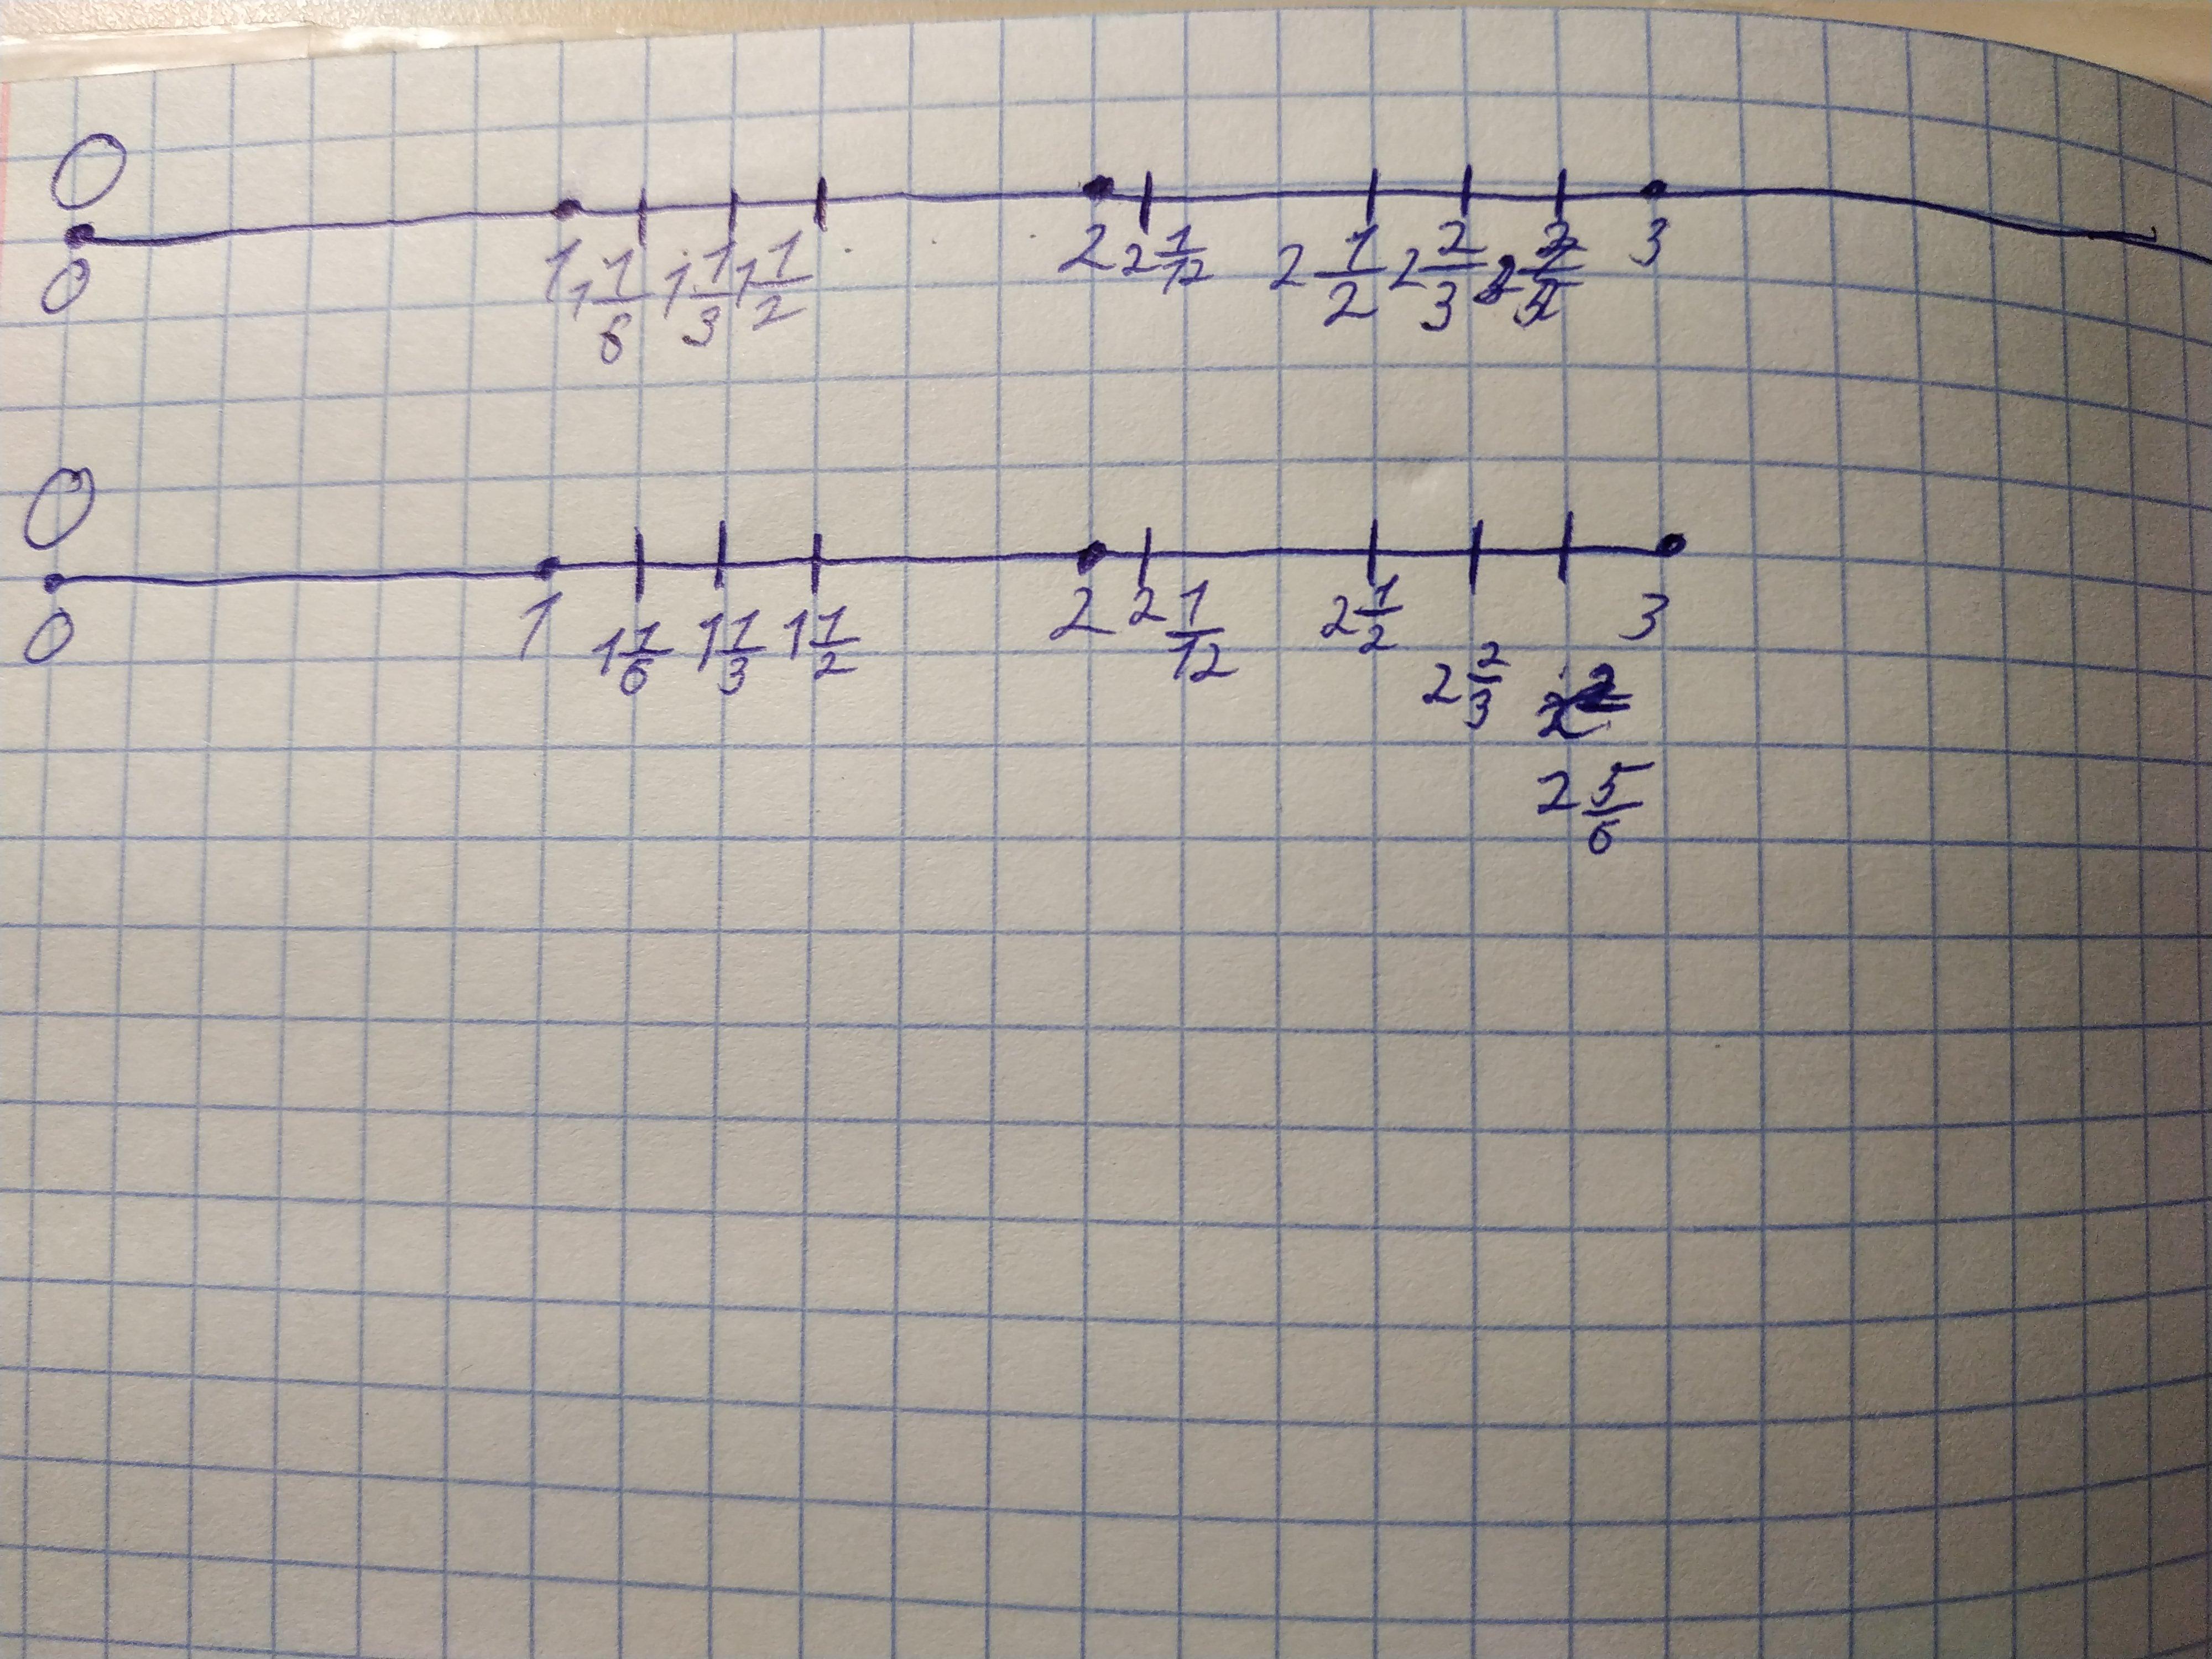 O
0 1 1 1/6 1 1/3 1 1/2 2 2 1/12 2 1/2 2 2/3 3
O
0 1 1 1/6 1 1/3 1 1/2 2 2 1/12 2 1/2 2 2/3 3
2 5/6